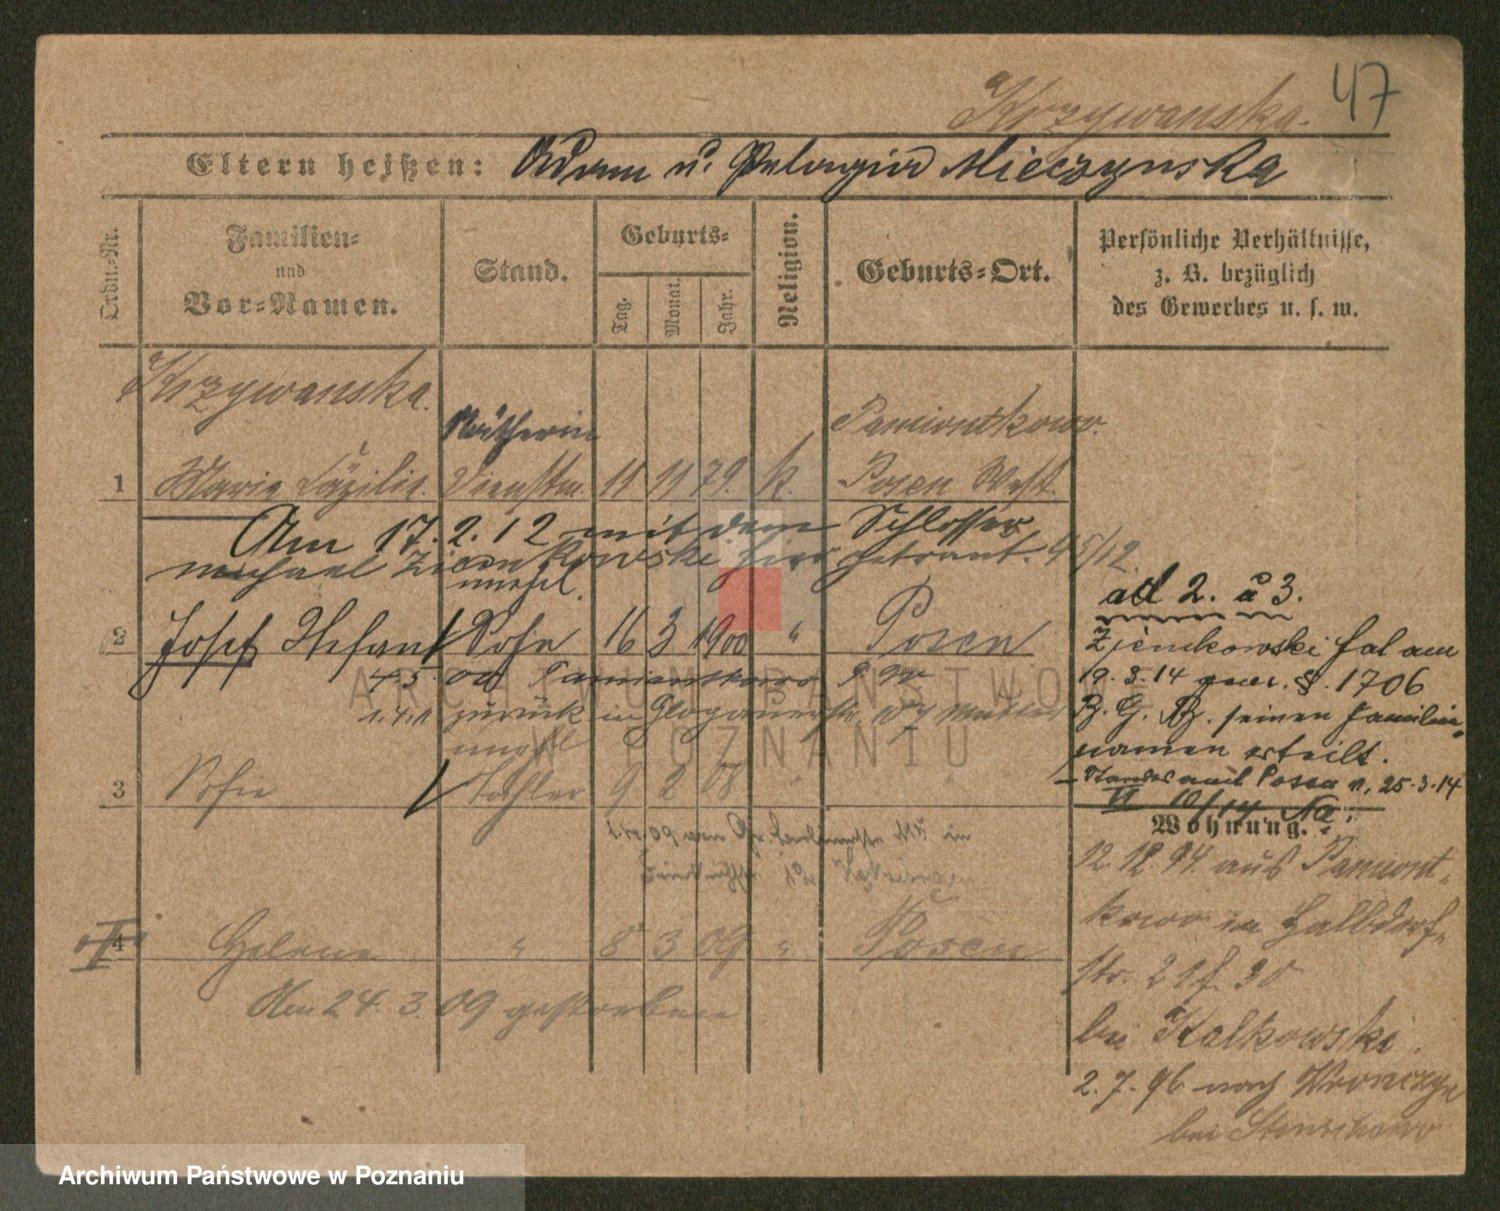 47
Krzywanska.
Eltern heißen: Adam u. Pelagia Mieczynska
Ordn.-Nr.
Familien-
und
Vor-Namen.
Stand.
Geburts-
Tag.
Monat.
Jahr.
Religion.
Geburts-Ort.
Persönliche Verhältnisse,
z. B. bezüglich
des Gewerbes u. s. w.
Krzywanska.
Nätherin
Pamiontkowo.
1 Marie Cäzilie. Dienstm. 11 11 79. k. Posen West.
Am 17. 2. 12 mit dem Schlosser
Michael Ziemkowski hier getraut. 45/12.
unehel.
2 Josef Stefan Sohn 16 3 1900 " Posen
4.5. 00 Pamiontkowo P. W.
zurück in Glogauerstr. Mutter
unehl
3 Sofie Tochter 9 2 08 " "
4 Helene " 8 3 09 " Posen
Am 24. 3. 09 gestorben
ad 2. u 3.
Ziemkowski hat am
19. 3. 14 gem. §. 1706
B. G. B. seinen Familien-
namen erteilt.
Standesamt Posen v. 25.3.14
VI 10/14
Wohnung.
12. 12. 94. aus Pamiont-
kowo in Halbdorf-
str. 21
bei Kalkowski.
2. 7. 96 nach Wronczyn
bei Stenschewo
ARCHIWUM PAŃSTWOWE
W POZNANIU
Archiwum Państwowe w Poznaniu